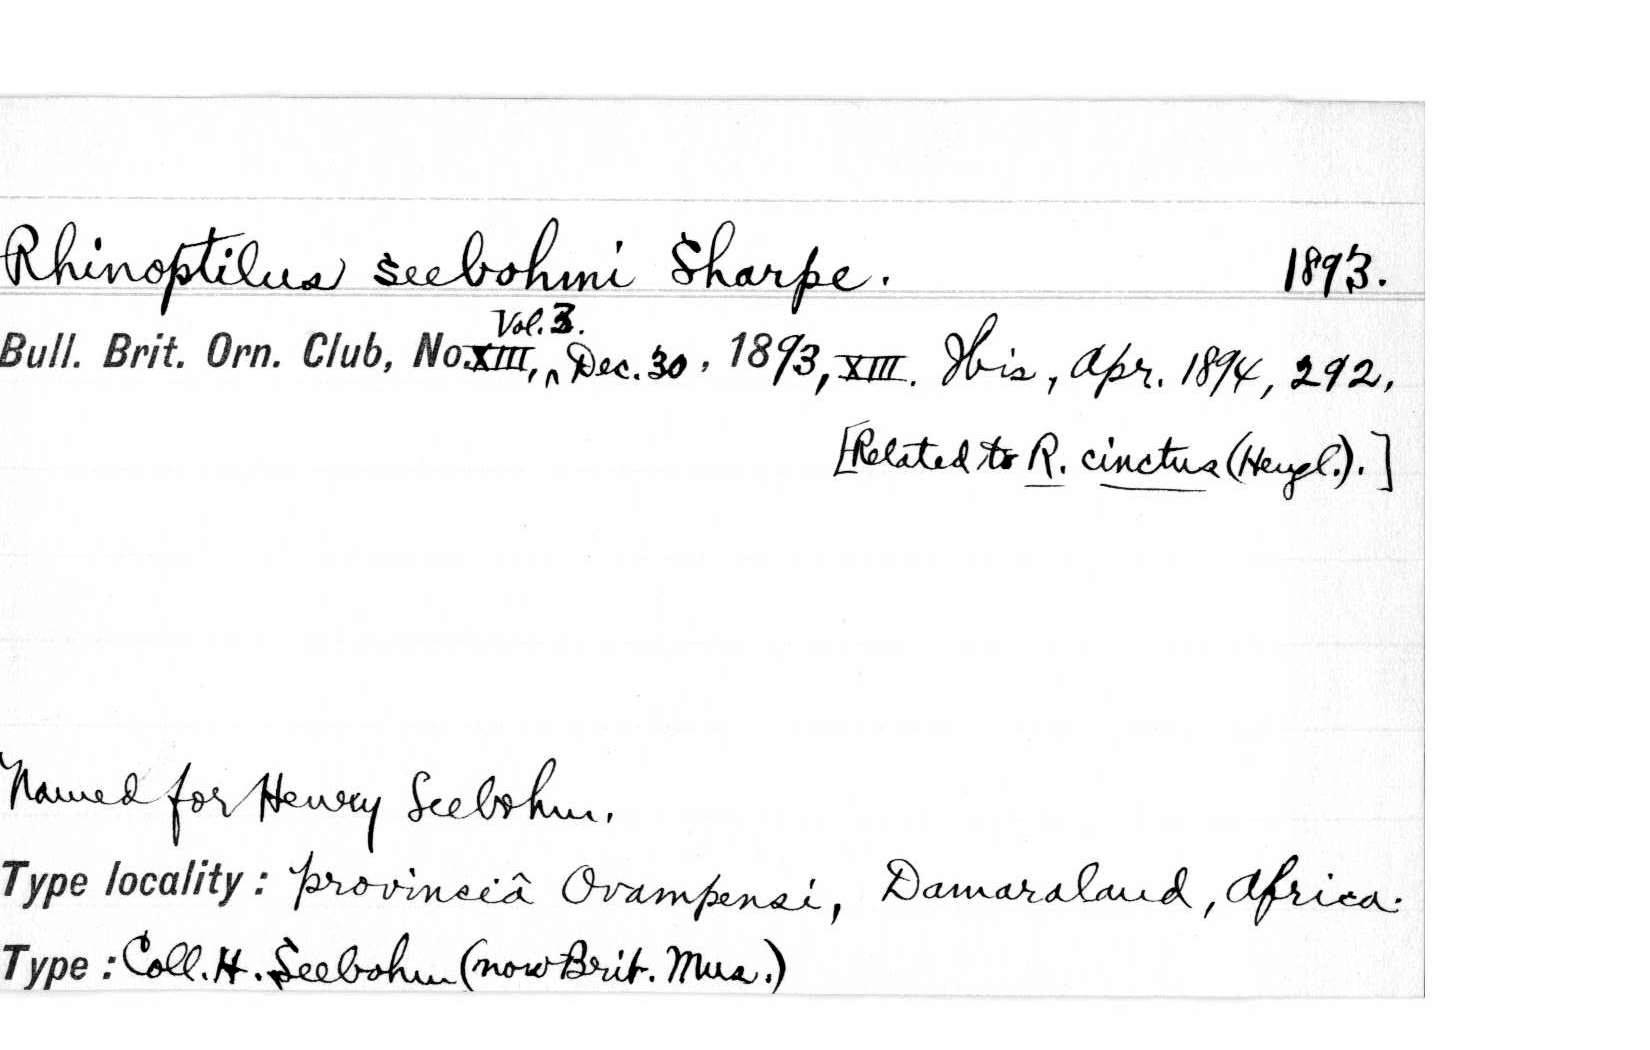 Rhinoptilus seebohmi Sharpe. 1893.
Vol. 3.
Bull. Brit. Orn. Club, No. XIII, ^ Dec. 30, 1893, XIII. Ibis, Apr. 1894, 292.
[Related to R. cinctus (Heugl.).]
Named for Henry Seebohm.
Type locality: provinciâ Ovampensi, Damaraland, Africa.
Type: Coll. H. Seebohm (now Brit. Mus.)